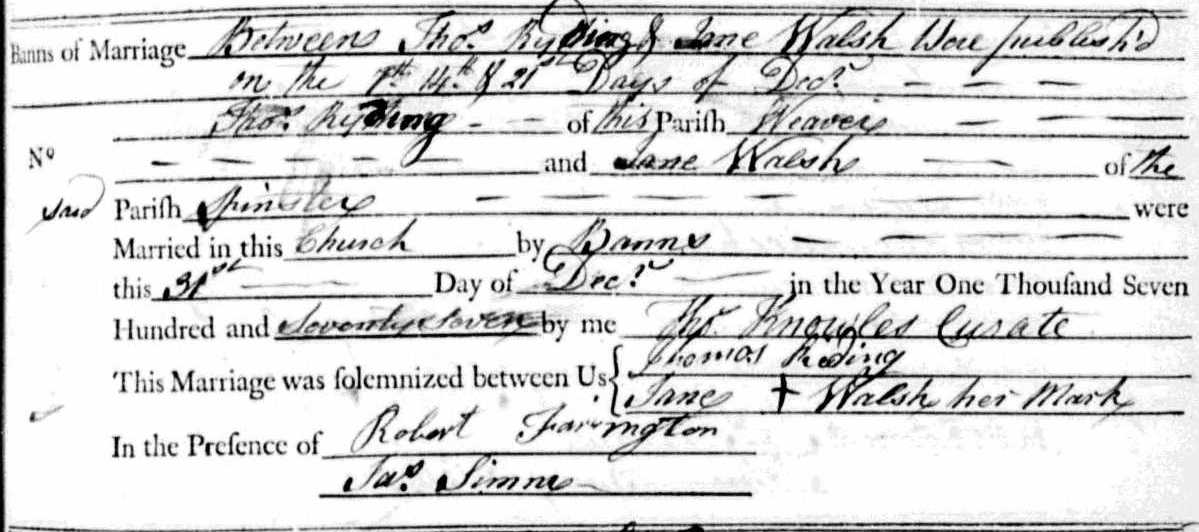 Banns of Marriage Between Thos. Ryding & Jane Walsh Were publish'd
on the 7th. 14th. & 21st Days of Decr. — — —
Thos. Ryding - — of this Pariſh Weaver — — —
No — — — — — and Jane Walsh — of the
said Pariſh Spinster — — — — — were
Married in this Church by Banns — — —
this 31st — Day of Decr. — in the Year One Thouſand Seven
Hundred and Seventy Seven by me Thos. Knowles Curate
This Marriage was ſolemnized between Us { Thomas Reding
Jane + Walsh her Mark
In the Preſence of Robert Farrington
Jas. Simm